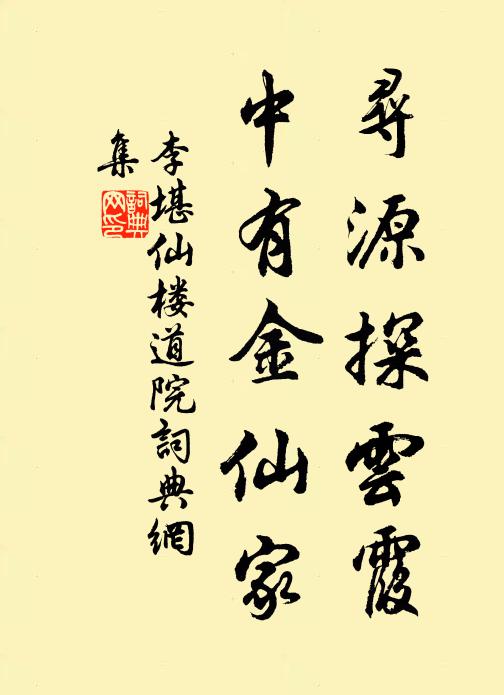 尋源探雲霞
中有金仙家
李堪仙楼道院詞典網
集
詞典
网印